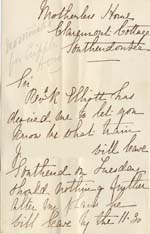 Motherless Home
Claremont Cottage
Southend on Sea
Sir
Elliott has
desired me to let you
know be what train
I will leave
Southend on Tuesday
should nothing further
alter my plans he
will leave by the 11-30